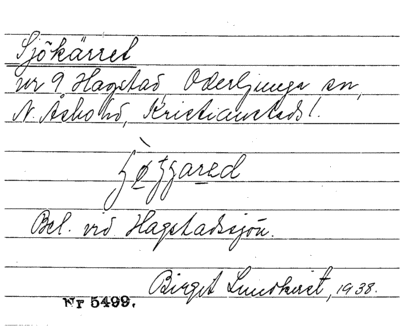 Sjökärret
nr 9 Hagstad, Oderljunga sn,
N. Åsbo hd, Kristianstads l.
Bel. vid Hagstadssjön.
Birgit Lundkvist, 1938.
Nr 5499.